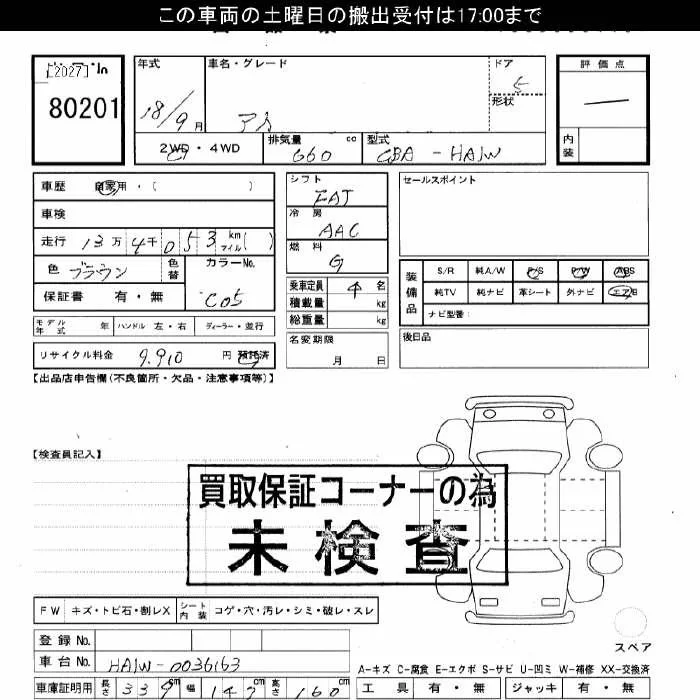 この車両の土曜日の搬出受付は17:00まで
[2027]
80201
年式
車名・グレード
ドア
5
評価点
18/9月
アイ
形状
2WD・4WD
排気量
660
cc
型式
CBA-HA1W
内装
車歴
自家用・(
)
シフト
FAT
セールスポイント
車検
冷房
AAC
走行
13万4千053
km
マイル
(
)
燃料
G
色
ブラウン
色替
カラーNo.
C05
装備品
S/R
純A/W
P/S
P/W
ABS
保証書
有・無
乗車定員
4
名
純TV
純ナビ
革シート
外ナビ
エアB
積載量
kg
ナビ型番:
モデル年式
年
ハンドル
左・右
ディーラー・並行
総重量
kg
リサイクル料金
9,910
円
預託済
名変期限
月
日
後日品
【出品店申告欄(不良箇所・欠品・注意事項等)】
【検査員記入】
買取保証コーナーの為
未検査
FW
キズ・トビ石・割レX
シート内装
コゲ・穴・汚レ・シミ・破レ・スレ
登録No.
スペア
車台No.
HA1W-0036163
A-キズ C-腐食 E-エクボ S-サビ U-凹ミ W-補修 XX-交換済
車庫証明用
長さ
339
cm
幅
147
cm
高さ
160
cm
工具
有・無
ジャッキ
有・無